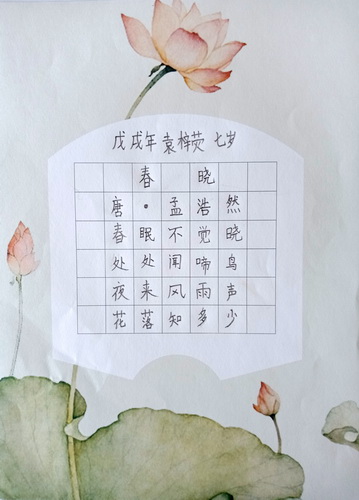 戊戌年 袁梓荧 七岁
春 晓
唐·孟浩然
春眠不觉晓
处处闻啼鸟
夜来风雨声
花落知多少